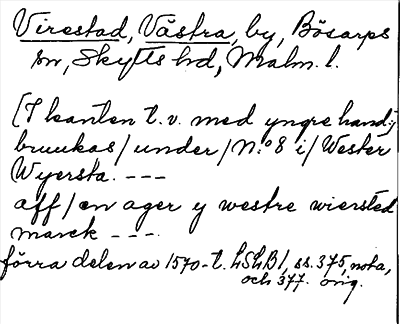 Virestad, Västra, by, Bösarps
sn, Skytts hd, Malm. l.
[I kanten t. v. med yngre hand:]
bruukas/under/N:o 8 i/Wester
Wyersta. ---
aff/en ager y westre wiersted
marck ---.
förra delen av 1570-t. LSLB1, ss. 375, nota,
och 377. orig.